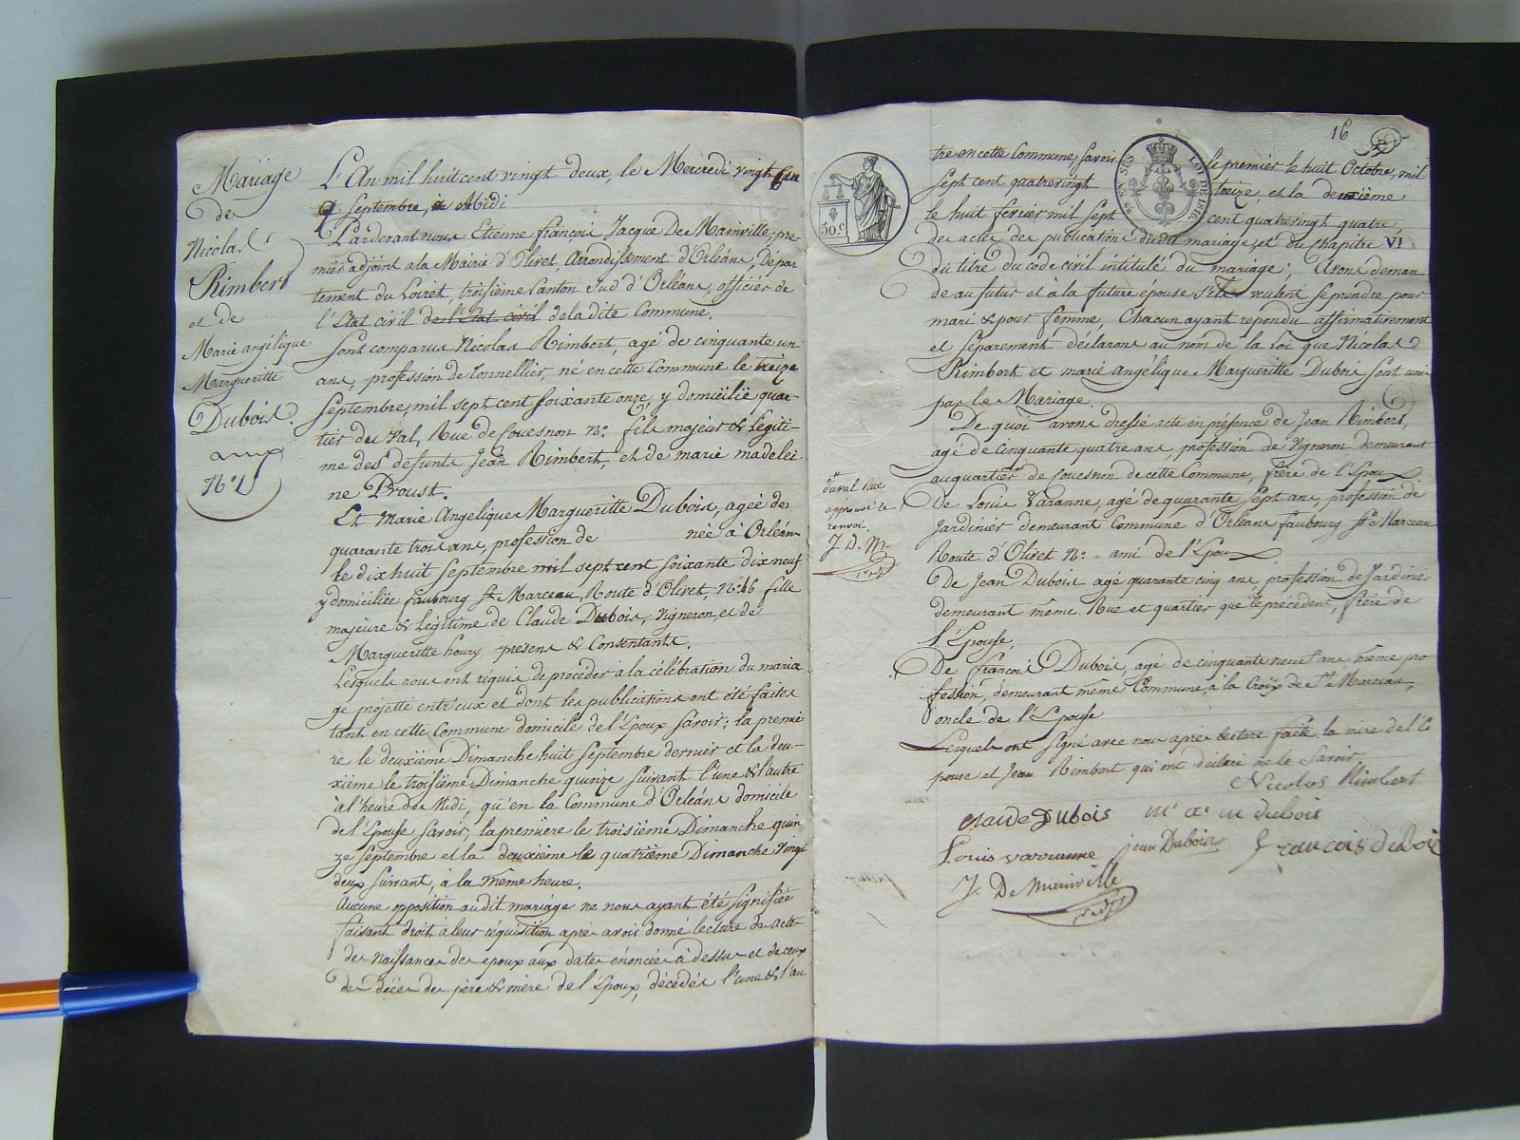 Mariage
de
Nicolas
Rimbert
et de
Marie angélique
Margueritte
Dubois.
L'An mil huit cent vingt deux, le Mercredi vingt cinq
Septembre, à Midi
Pardevant nous Etienne françois Jacque De Mainville, pre
mier adjoint a la Mairie d'Olivet, Arrondissement d'Orléans, Dépar
tement du Loiret, troisième Canton Sud d'Orléans, officier de
l'Etat civil de l'Etat civil de la dite Commune.
Sont comparus Nicolas Rimbert, agé de cinquante un
ans, profession de Tonnellier, né en cette Commune le treize
Septembre, mil sept cent soixante onze, y domicilié quar-
tier du Val, Rue de Couesnon N.° fils majeur & Légiti-
me des défunts Jean Rimbert, et de marie madelei
ne Proust.
Et Marie Angelique Margueritte Dubois, agée de
quarante trois ans, profession de née à Orléans
le dix huit Septembre mil sept cent soixante dix neuf
y domiciliée faubourg St. Marceau, Route d'Olivet, N.° 46 fille
majeure & légitime de Claude Dubois, Vigneron, et de
Margueritte houry presens & Consentants.
Lesquels nous ont requis de procéder à la célébration du maria
ge projetté entr'eux et dont les publications ont été faites
tant en cette Commune domicile de l'Epoux Savoir; la premiè
re le deuxième Dimanche huit Septembre dernier et la deu-
xième le troisième Dimanche quinze Suivant l'une & l'autre
à l'heure de Midi, qu'en la Commune d'Orléans domicile
de l'Epouse Savoir; la première le troisième Dimanche quin
ze Septembre et la deuxième le quatrième Dimanche Vingt
deux Suivant, à la même heure.
Aucune opposition audit mariage ne nous ayant été signifiée
faisant droit à leur réquisition après avoir donné lecture des actes
de Naissance des epoux aux dates énoncées à dessus et de ceux
de Décès des père & mère de l'Epoux, décédés l'une & l'au
16
tre en cette Commune, Savoir le premier le huit Octobre, mil
sept cent quatrevingt treize, et la deuxième
le huit fevrier mil Sept cent quatrevingt quatre,
des actes des publications dudit mariage, et du chapitre VI
du titre du code civil intitulé du mariage; Avons deman
dé au futur et à la future épouse s'ils veulent se prendre pour
mari & pour femme, Chacun ayant repondu affirmativement
et séparement déclarons au nom de la Loi que Nicolas
Rimbert et marie angélique Margueritte Dubois sont unis
par le Mariage.
De quoi avons dressé acte en présence de Jean Rimbert,
agé de Cinquante quatre ans, profession de Vigneron demeurant
au quartier de Couesnon de cette Commune, frère de l'Epoux
De Louis Varanne, agé de quarante Sept ans, profession de
Jardinier demeurant Commune d'Orléans faubourg St. Marceau
Route d'Olivet N.° ami de l'Epoux
De Jean Dubois agé quarante cinq ans profession de Jardinier
demeurant même Rue et quartier que le précédent, frère de
l'Epouse,
De françois Dubois, agé de cinquante neuf ans même pro
fession, demeurant même Commune à la Croix de St. Marceau,
oncle de l'Epouse
Lesquels ont signé avec nous après lecture faite, la mère de l'é
pouse et Jean Rimbert qui ont déclaré ne le Savoir
approuvé le
renvoi.
J. D. M.
Nicolas Rimbert
claude Dubois m a m dubois
Louis varranne jean Dubois francois duboi
J. De Mainville